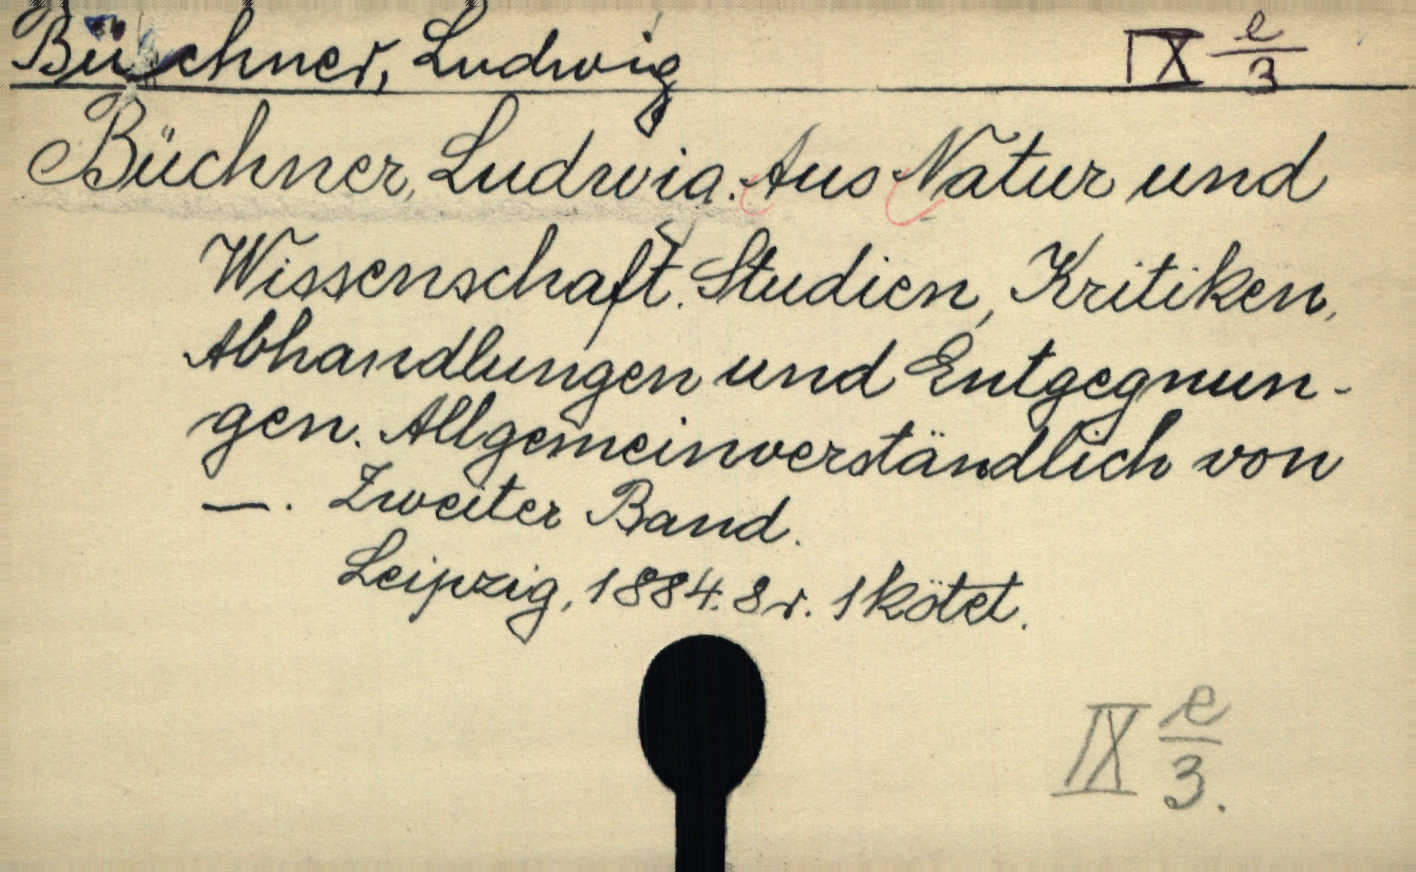 Büchner, Ludwig IX e/3
Büchner, Ludwig. Aus Natur und
Wissenschaft. Studien, Kritiken,
Abhandlungen und Entgegnun-
gen. Allgemeinverständlich von
—. Zweiter Band.
Leipzig, 1884. 8r. 1 kötet.
IX e/3.